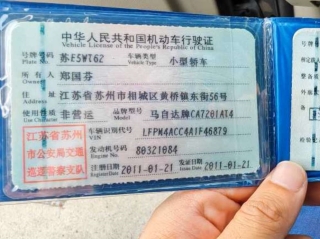 中华人民共和国机动车行驶证
Vehicle License of the People's Republic of China
号牌号码 苏E5WT62 车辆类型 小型轿车
Plate No. Vehicle Type
所有人 郑国芬
Owner
住址 江苏省苏州市相城区黄桥镇东街56号
Address
使用性质 非营运 品牌型号 马自达牌CA7201AT4
Use Character Model
江苏省苏州
市公安局交通
巡逻警察支队
车辆识别代号 LFPM4ACC4A1F46879
VIN
发动机号码 80321084
Engine No.
注册日期 2011-01-21 发证日期 2011-01-21
Register Date Issue Date